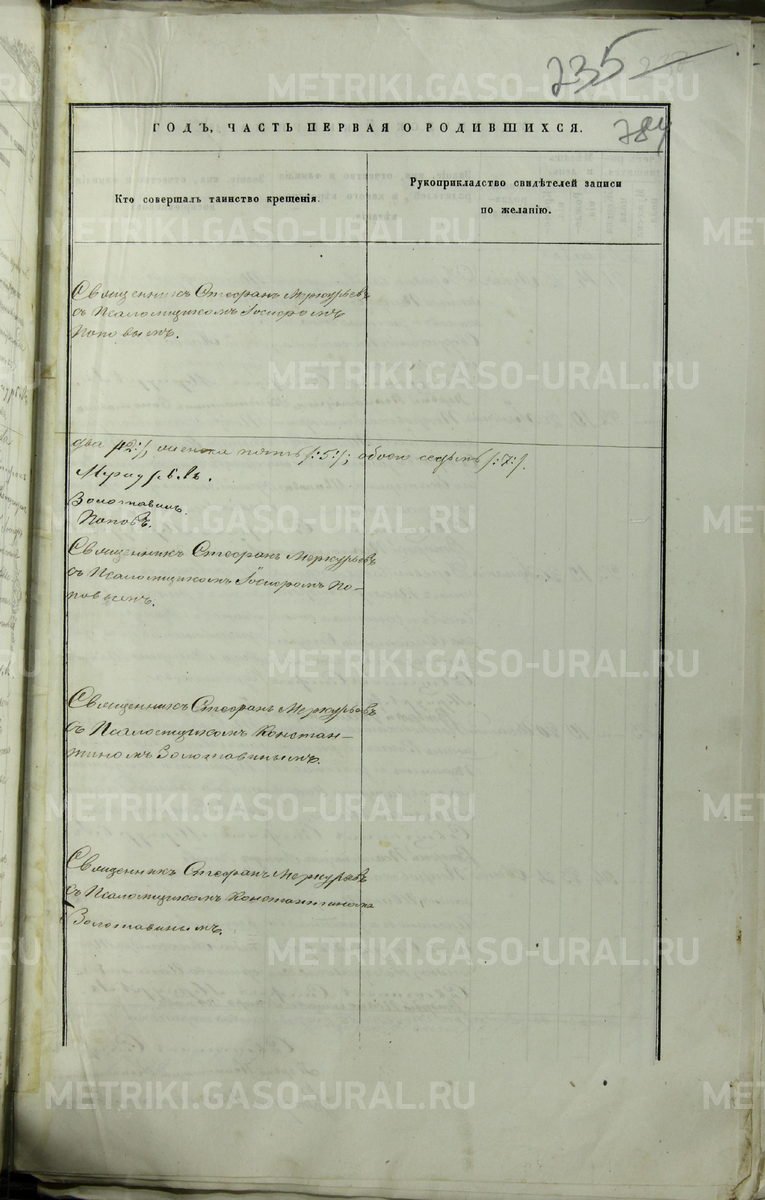 235
784
ГОДЪ, ЧАСТЬ ПЕРВАЯ О РОДИВШИХСЯ.
Кто совершалъ таинство крещенія.
Рукоприкладство свидѣтелей записи
по желанію.
Священникъ Стефанъ Меркурьевъ
съ Псаломщикомъ
Поповымъ.
два /:2:/, женска пять /:5:/; обоего седьмь /:7:/.
Меркурьевъ.
Золотавинъ.
Поповъ.
Священникъ Стефанъ Меркурьевъ
съ Псаломщикомъ По-
повымъ.
Священникъ Стефанъ Меркурьевъ
съ Псаломщикомъ Констан-
тиномъ Золотавинымъ.
Священникъ Стефанъ Меркурьевъ
съ Псаломщикомъ Константиномъ
Золотавинымъ.
METRIKI.GASO-URAL.RU